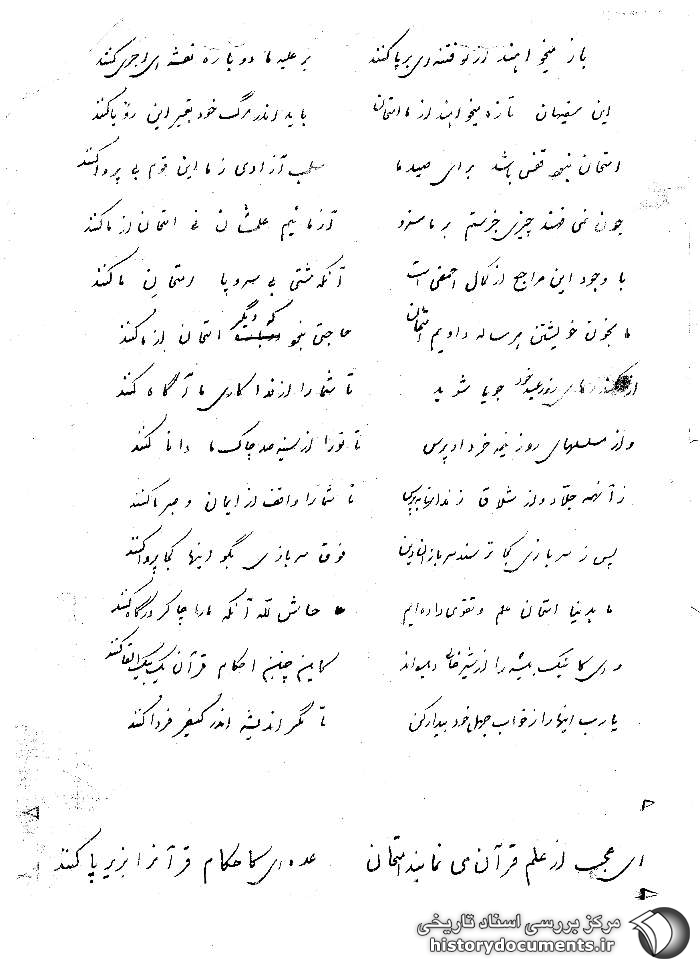 باز میخواهند از نو فتنه ای برپا کنند بر علیه ما دوباره نقشه ای اجرا کنند
این سفیهان تازه میخواهند از ما امتحان باید اندر مرگ خود تعبیر این رؤیا کنند
امتحان نبود قفس باشد برای صید ما سلب آزادی ز ما این قوم بی پروا کنند
چون نمی فهمند چیزی جز ستم بر ما سزد آزمائیم علمشان نی امتحان از ما کنند
با وجود این مراجع از کمال احمقی است آنکه مشتی بی سر و پا امتحان ما کنند
ما بخون خویشتن هر ساله دادیم امتحان حاجتی نبود که دیگر امتحان از ما کنند
از روز عید خود جویا شوید تا شما را از فداکاری ما آگاه کنند
و از مسلسلهای روز نیمه خرداد پرس تا تو را از سینه صد چاک ما دانا کنند
ز آنهمه جلاد و از شلاق زندانها بپرس تا شما را واقف از ایمان و صبر ما کنند
پس ز سربازی کجا ترسند سربازان دین فوق سربازی بگو اینها کجا پروا کنند
ما بدنیا امتحان علم و تقوی داده ایم حاش لله آنکه ما را چاکر درگاه کنند
کاین چنین احکام قرآن یک بیک القا کنند
یا رب اینها را ز خواب جهل خود بیدار کن تا مگر اندیشه اندر کیفر فردا کنند
۴
ای عجب از علم قرآن می نمایند امتحان عده ای کاحکام قرآن را بزیر پا کنند
مرکز بررسی اسناد تاریخی
historydocuments.ir